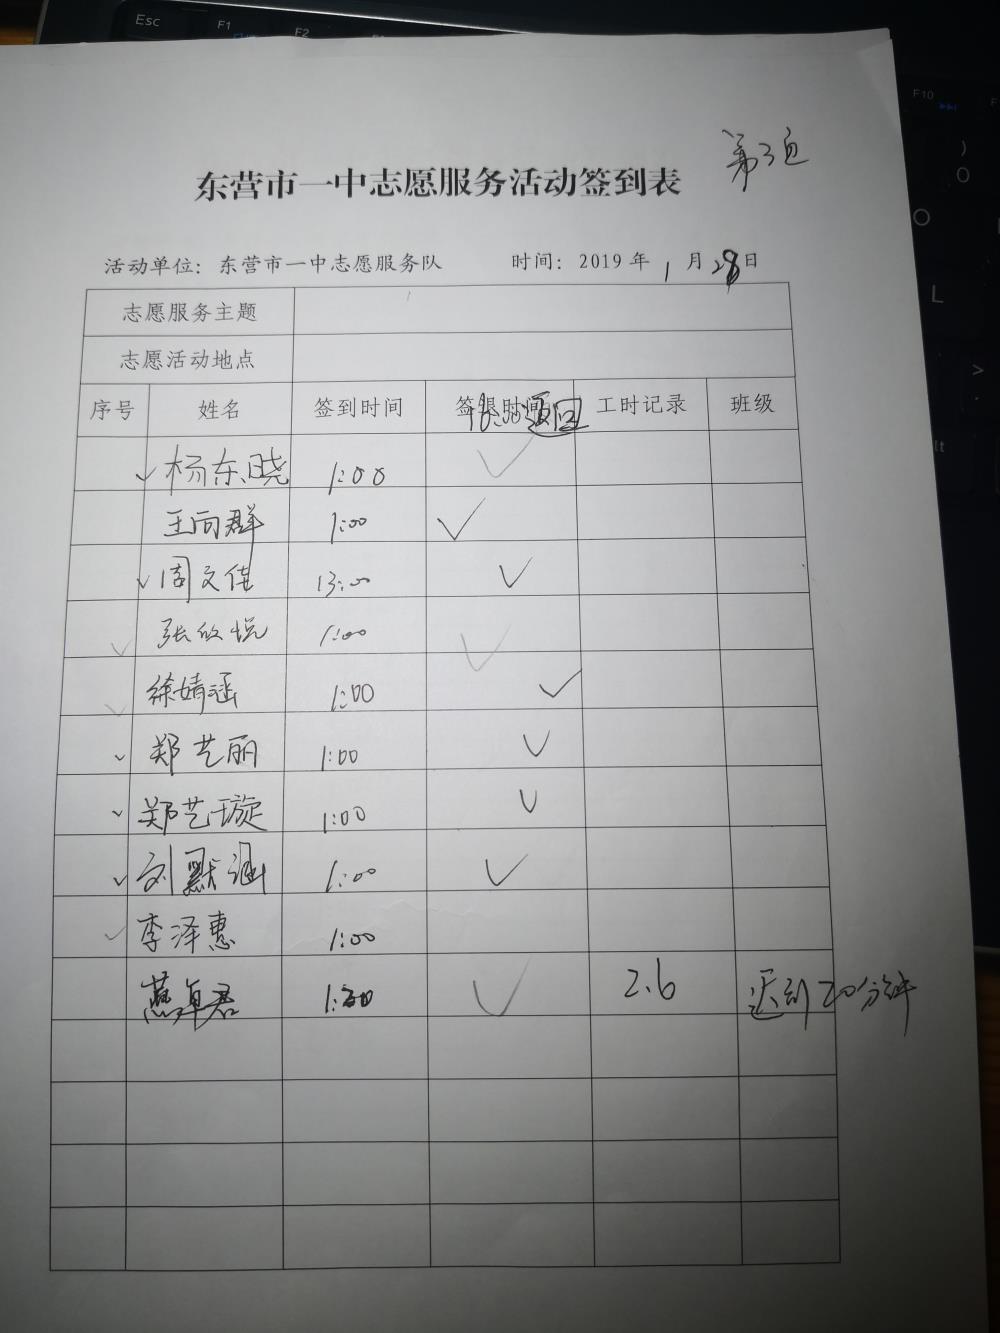 第3页
东营市一中志愿服务活动签到表
活动单位：东营市一中志愿服务队 时间：2019年1月28日
志愿服务主题
志愿活动地点
序号 姓名 签到时间 签退时间 工时记录 班级
返回
✓ 杨东晓 1:00 ✓
王向群 1:00 ✓
✓ 周文佳 13:00 ✓
✓ 张欣悦 1:00 ✓
✓ 徐婧涵 1:00 ✓
✓ 郑艺丽 1:00 ✓
✓ 郑艺璇 1:00 ✓
✓ 刘默涵 1:00 ✓
✓ 李泽惠 1:00
燕卓君 1:20 ✓ 2.6 迟到20分钟